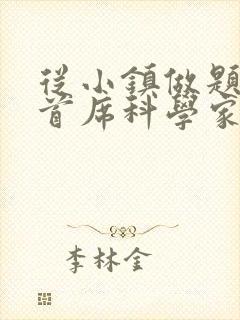 從小鎮做題
首席科學家
李林金